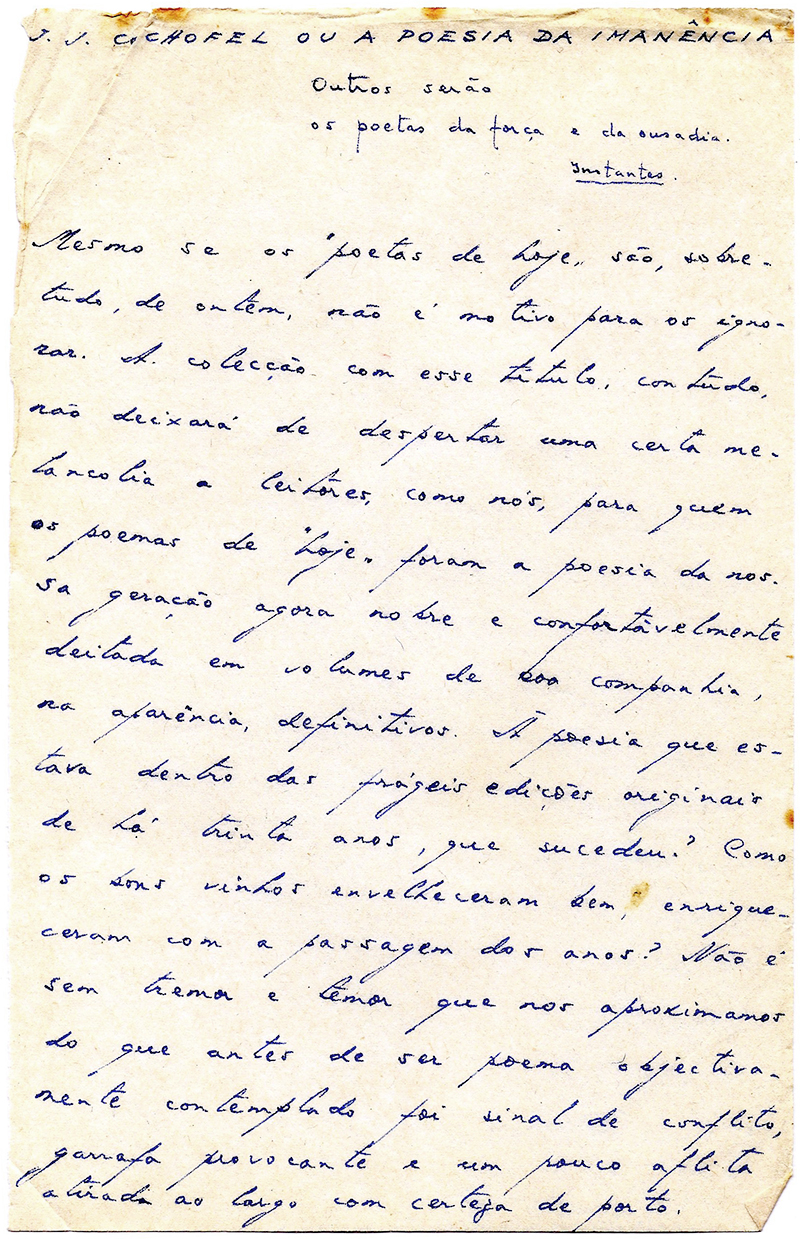 J. J. COCHOFEL OU A POESIA DA IMANÊNCIA
Outros serão
os poetas da força e da ousadia.
Instantes.
Mesmo se os "poetas de hoje" são, sobre-
tudo, de ontem, não é motivo para os igno-
rar. A colecção com esse título, contudo,
não deixará de despertar uma certa me-
lancolia a leitores, como nós, para quem
os poemas de "hoje" foram a poesia da nos-
sa geração agora nobre e confortàvelmente
deitada em volumes de boa companhia,
na aparência, definitivos. À poesia que es-
tava dentro das frágeis edições originais
de há trinta anos, que sucedeu? Como
os bons vinhos envelheceram bem, enrique-
ceram com a passagem dos anos? Não é
sem tremor e temor que nos aproximamos
do que antes de ser poema objectiva-
mente contemplado foi sinal de conflito,
garrafa provocante e um pouco aflita
atirada ao largo com certeza de porto.